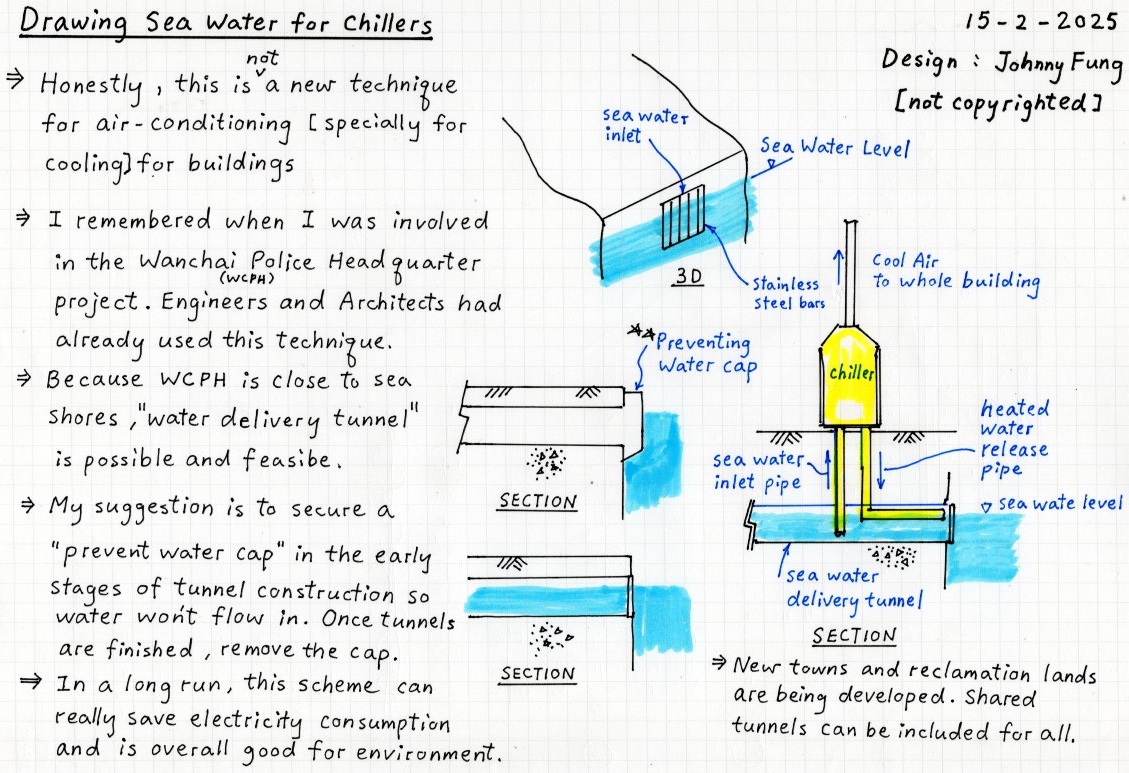 Drawing Sea Water for Chillers
15-2-2025
Design : Johnny Fung
[not copyrighted]
⇒ Honestly, this is not a new technique
for air-conditioning [specially for
cooling] for buildings
⇒ I remembered when I was involved
in the Wanchai Police Headquarter
(WCPH)
project. Engineers and Architects had
already used this technique.
⇒ Because WCPH is close to sea
shores, "water delivery tunnel"
is possible and feasibe.
⇒ My suggestion is to secure a
"prevent water cap" in the early
stages of tunnel construction so
water won't flow in. Once tunnels
are finished, remove the cap.
⇒ In a long run, this scheme can
really save electricity consumption
and is overall good for environment.
sea water
inlet
Sea Water Level
3D
Stainless
steel bars
** Preventing
water cap
SECTION
SECTION
Cool Air
to whole building
chiller
heated
water
release
pipe
sea water
inlet pipe
sea wate level
sea water
delivery tunnel
SECTION
⇒ New towns and reclamation lands
are being developed. Shared
tunnels can be included for all.